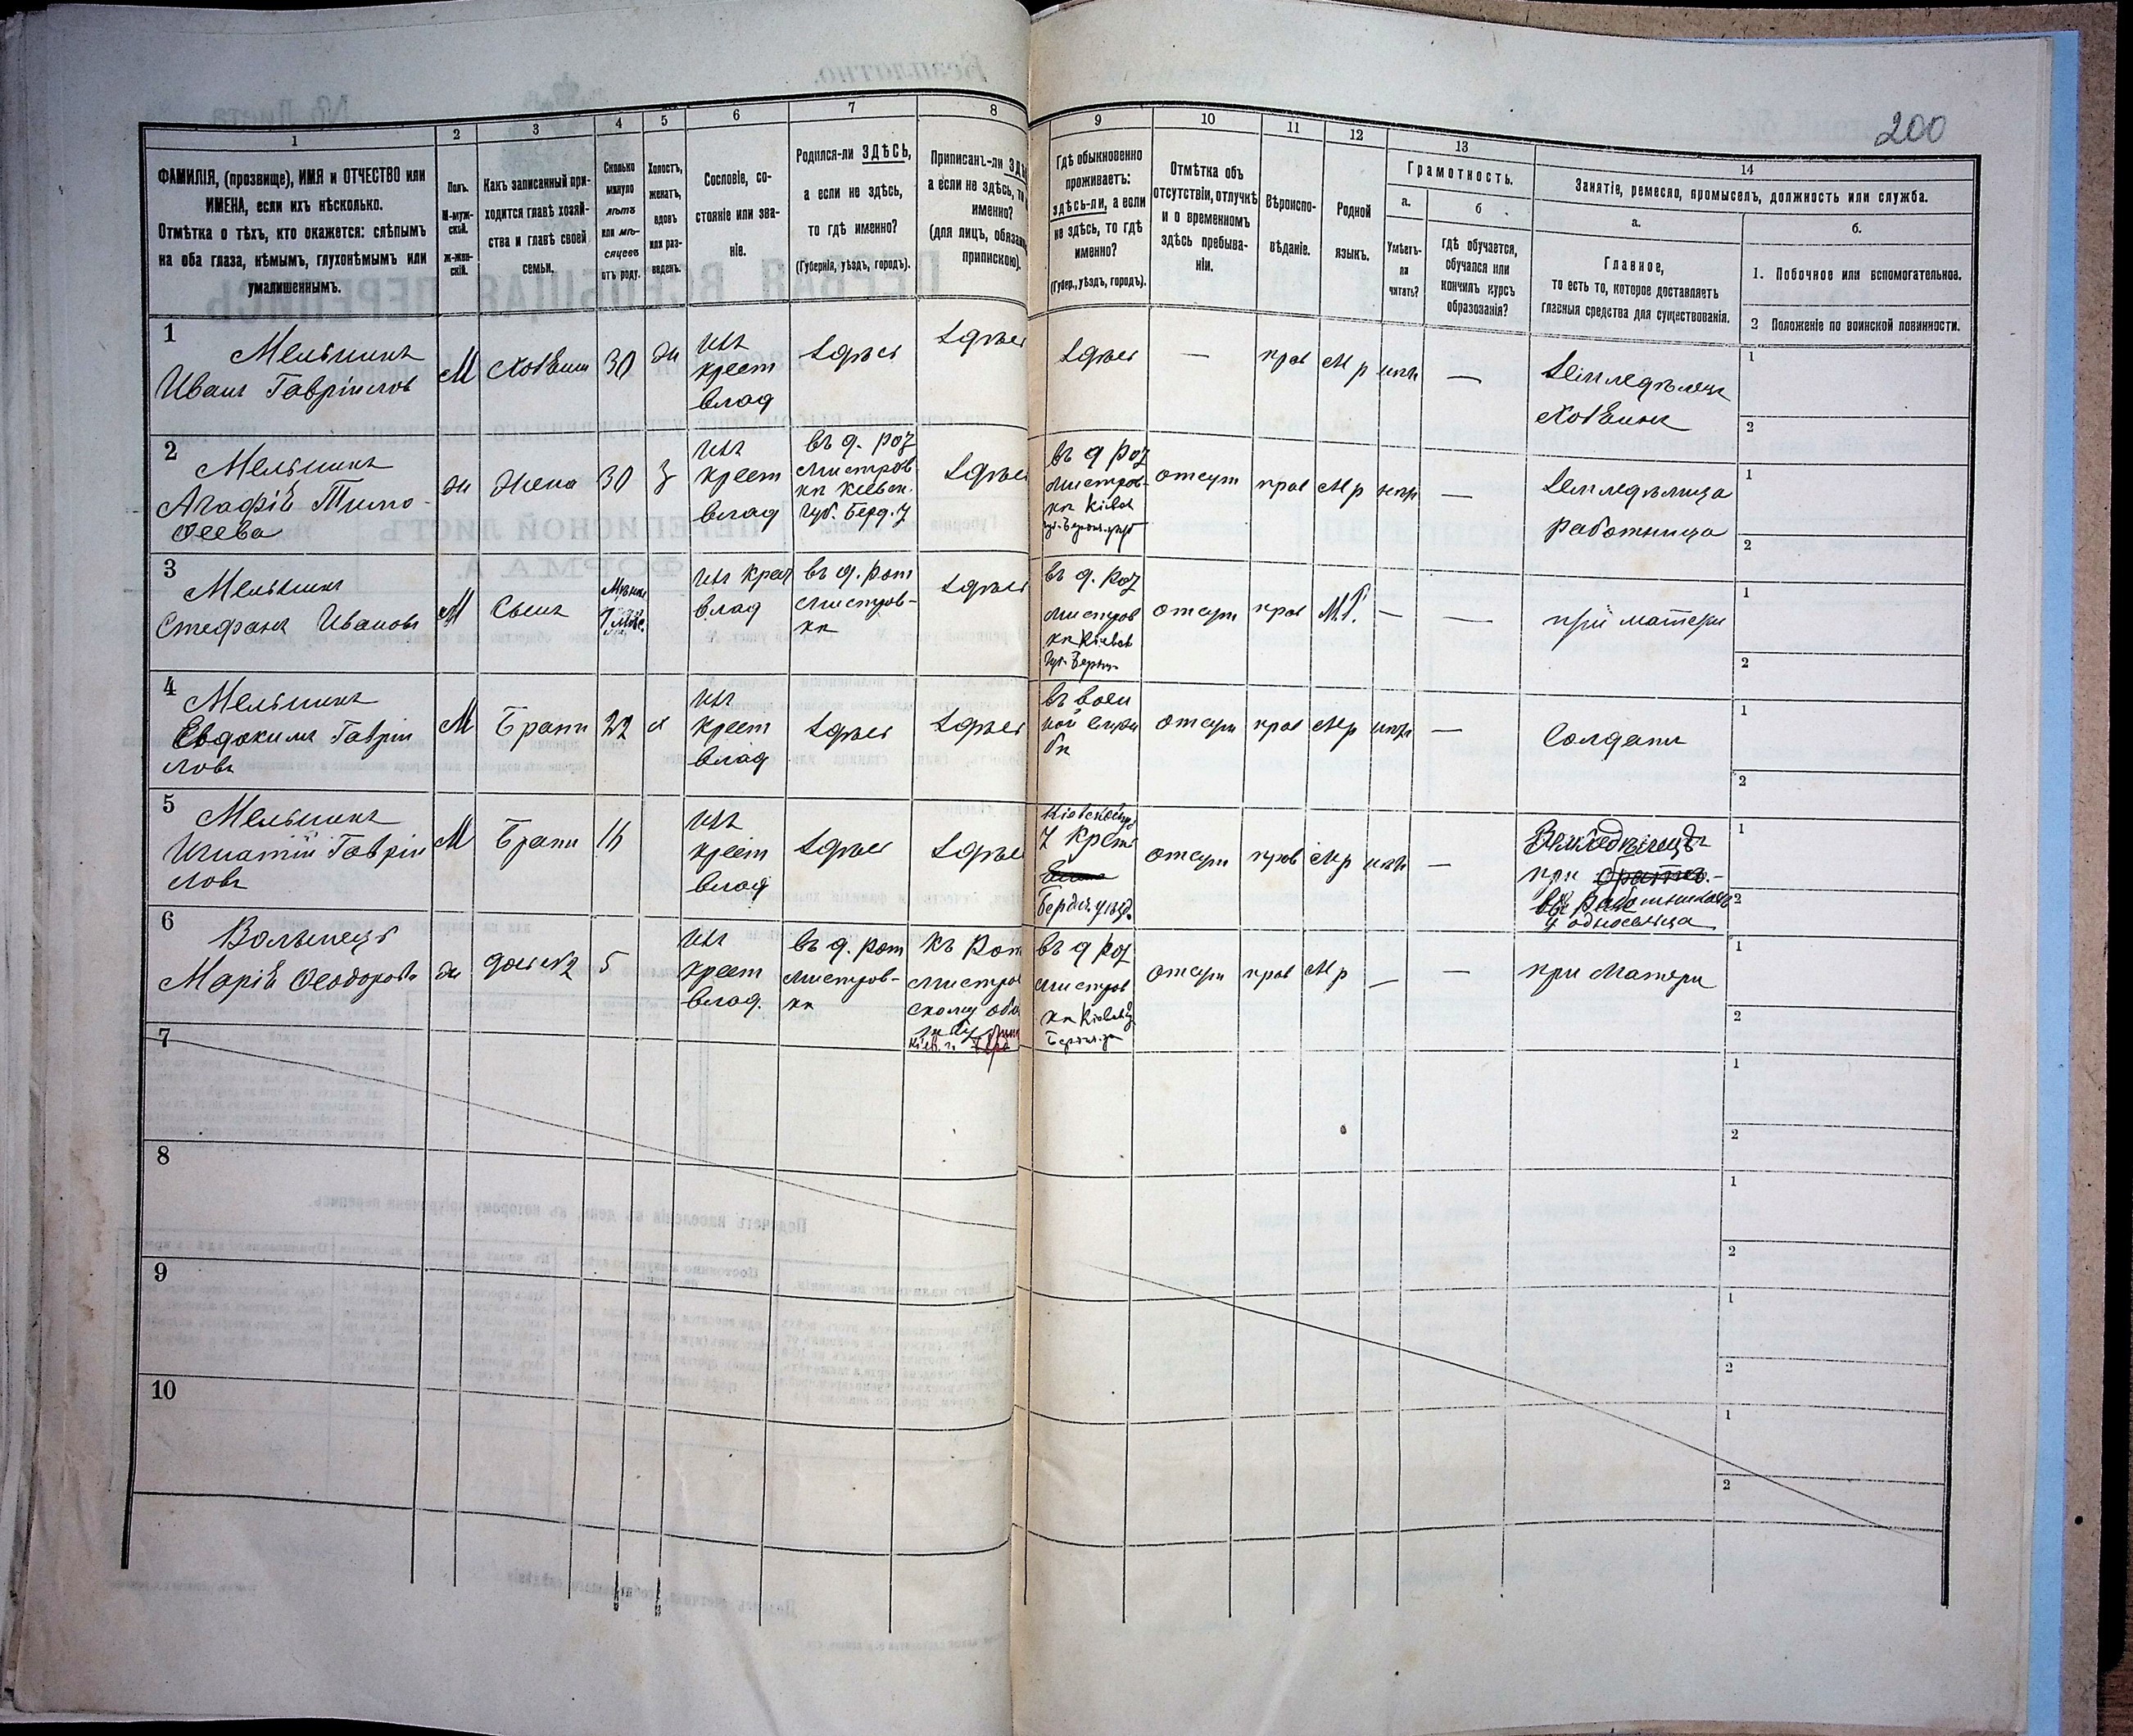 200
1
2
3
4
5
6
7
8
9
10
11
12
13
14
ФАМИЛІЯ, (прозвище), ИМЯ и ОТЧЕСТВО или
ИМЕНА, если ихъ нѣсколько.
Отмѣтка о тѣхъ, кто окажется: слѣпымъ
на оба глаза, нѣмымъ, глухонѣмымъ или
умалишеннымъ.
Полъ.
М-муж-
скій.
Ж-жен-
скій.
Какъ записанный при-
ходится главѣ хозяй-
ства и главѣ своей
семьи.
Сколько
минуло
лѣтъ
или мѣ-
сяцевъ
отъ роду.
Холостъ,
женатъ,
вдовъ
или раз-
веденъ.
Сословіе, со-
стояніе или зва-
ніе.
Родился-ли ЗДѢСЬ,
а если не здѣсь,
то гдѣ именно?
(Губернія, уѣздъ, городъ).
Приписанъ-ли
а если не здѣсь,
именно?
(для лицъ,
припискою).
Гдѣ обыкновенно
проживаетъ:
здѣсь-ли, а если
не здѣсь, то гдѣ
именно?
(Губер., уѣздъ, городъ).
Отмѣтка объ
отсутствіи, отлучкѣ
и о временномъ
здѣсь пребыва-
ніи.
Вѣроиспо-
вѣданіе.
Родной
языкъ.
Грамотность.
а.
б
Умѣетъ-
ли
читать?
Гдѣ обучается,
обучался или
кончилъ курсъ
образованія?
Занятіе, ремесло, промыселъ, должность или служба.
а.
Главное,
то есть то, которое доставляетъ
главныя средства для существованія.
б.
1. Побочное или вспомогательное.
2 Положеніе по воинской повинности.
1
Мельникъ
Иванъ Гавріиловъ
М
Хозяин
30
ж
изъ
крест
влад
здѣсь
здѣсь
здѣсь
—
прав
М р
—
Земледѣлецъ
Хозяинъ
1
2
2
Мельникъ
Агафія Тимо-
феева
ж
Жена
30
з
изъ
крест
влад
въ д. Рот
мистров-
кѣ Кіевск.
губ. Берд. у
здѣсь
въ д Рот
мистров-
кѣ Кіевск
отсут
прав
М р
—
Земледѣлица
работница
1
2
3
Мельникъ
Стефанъ Ивановъ
М
Сынъ
изъ крест
влад
въ д. Рот
мистров-
кѣ
здѣсь
въ д. Рот
мистров
кѣ Кіевск
отсут
прав
М.р.
—
—
при матери
1
2
4
Мельникъ
Евдокимъ Гавріи
ловъ
М
Братъ
22
х
изъ
крест
влад
здѣсь
здѣсь
въ воен
ной служ
бѣ
отсут
прав
М р
—
Солдатъ
1
2
5
Мельникъ
Игнатій Гавріи
ловъ
М
Братъ
16
изъ
крест
влад
здѣсь
здѣсь
Бердич. уѣзд.
отсут
прав
М р
—
Земледѣлецъ
при братѣ.
у односельца
1
2
6
Волынецъ
Марія Феодорова
ж
5
изъ
крест
влад.
въ д. Рот
мистров-
кѣ
къ Рот
мистров
скому
въ д Рот
мистров
кѣ
отсут
прав
М р
—
—
при матери
1
2
7
1
2
8
1
2
9
1
2
10
1
2